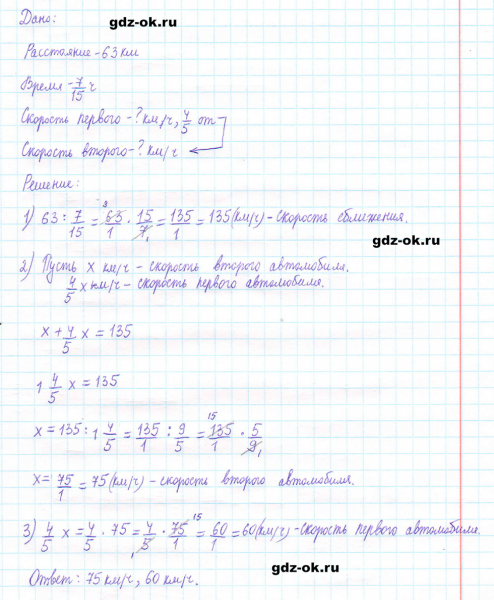 gdz-ok.ru
Дано:
Расстояние - 63 км
Время - 7/15 ч
Скорость первого - ? км/ч, 4/5 от
Скорость второго - ? км/ч
Решение:
1) 63 : 7/15 = 63/1 · 15/7 = 135/1 = 135 (км/ч) - скорость сближения.
gdz-ok.ru
2) Пусть x км/ч - скорость второго автомобиля.
4/5 x км/ч - скорость первого автомобиля.
x + 4/5 x = 135
1 4/5 x = 135
x = 135 : 1 4/5 = 135/1 : 9/5 = 135/1 · 5/9
x = 75/1 = 75 (км/ч) - скорость второго автомобиля.
gdz-ok.ru
3) 4/5 x = 4/5 · 75 = 4/5 · 75/1 = 60/1 = 60 (км/ч) - скорость первого автомобиля.
gdz-ok.ru
Ответ: 75 км/ч, 60 км/ч.